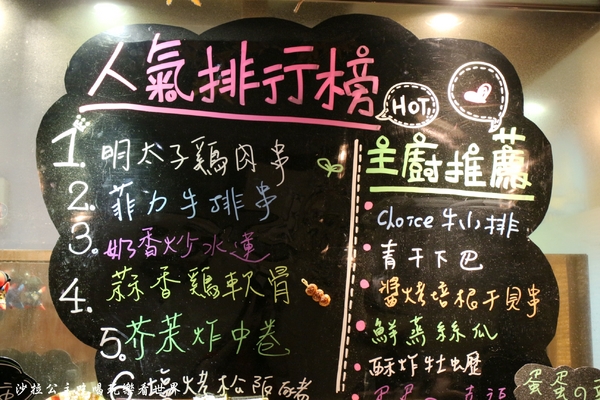 人氣排行榜
HOT
1. 明太子鷄肉串
2. 菲力牛排串
3. 奶香炒水蓮
4. 蒜香鷄軟骨
5. 芥茉炸中卷
6 塩烤松阪豬
主廚推薦
Choice 牛小排
青干下巴
醬烤培根干貝串
鮮蒸絲瓜
酥炸牡蠣
蛋蛋の
沙拉公主瘋喝玩樂看世界